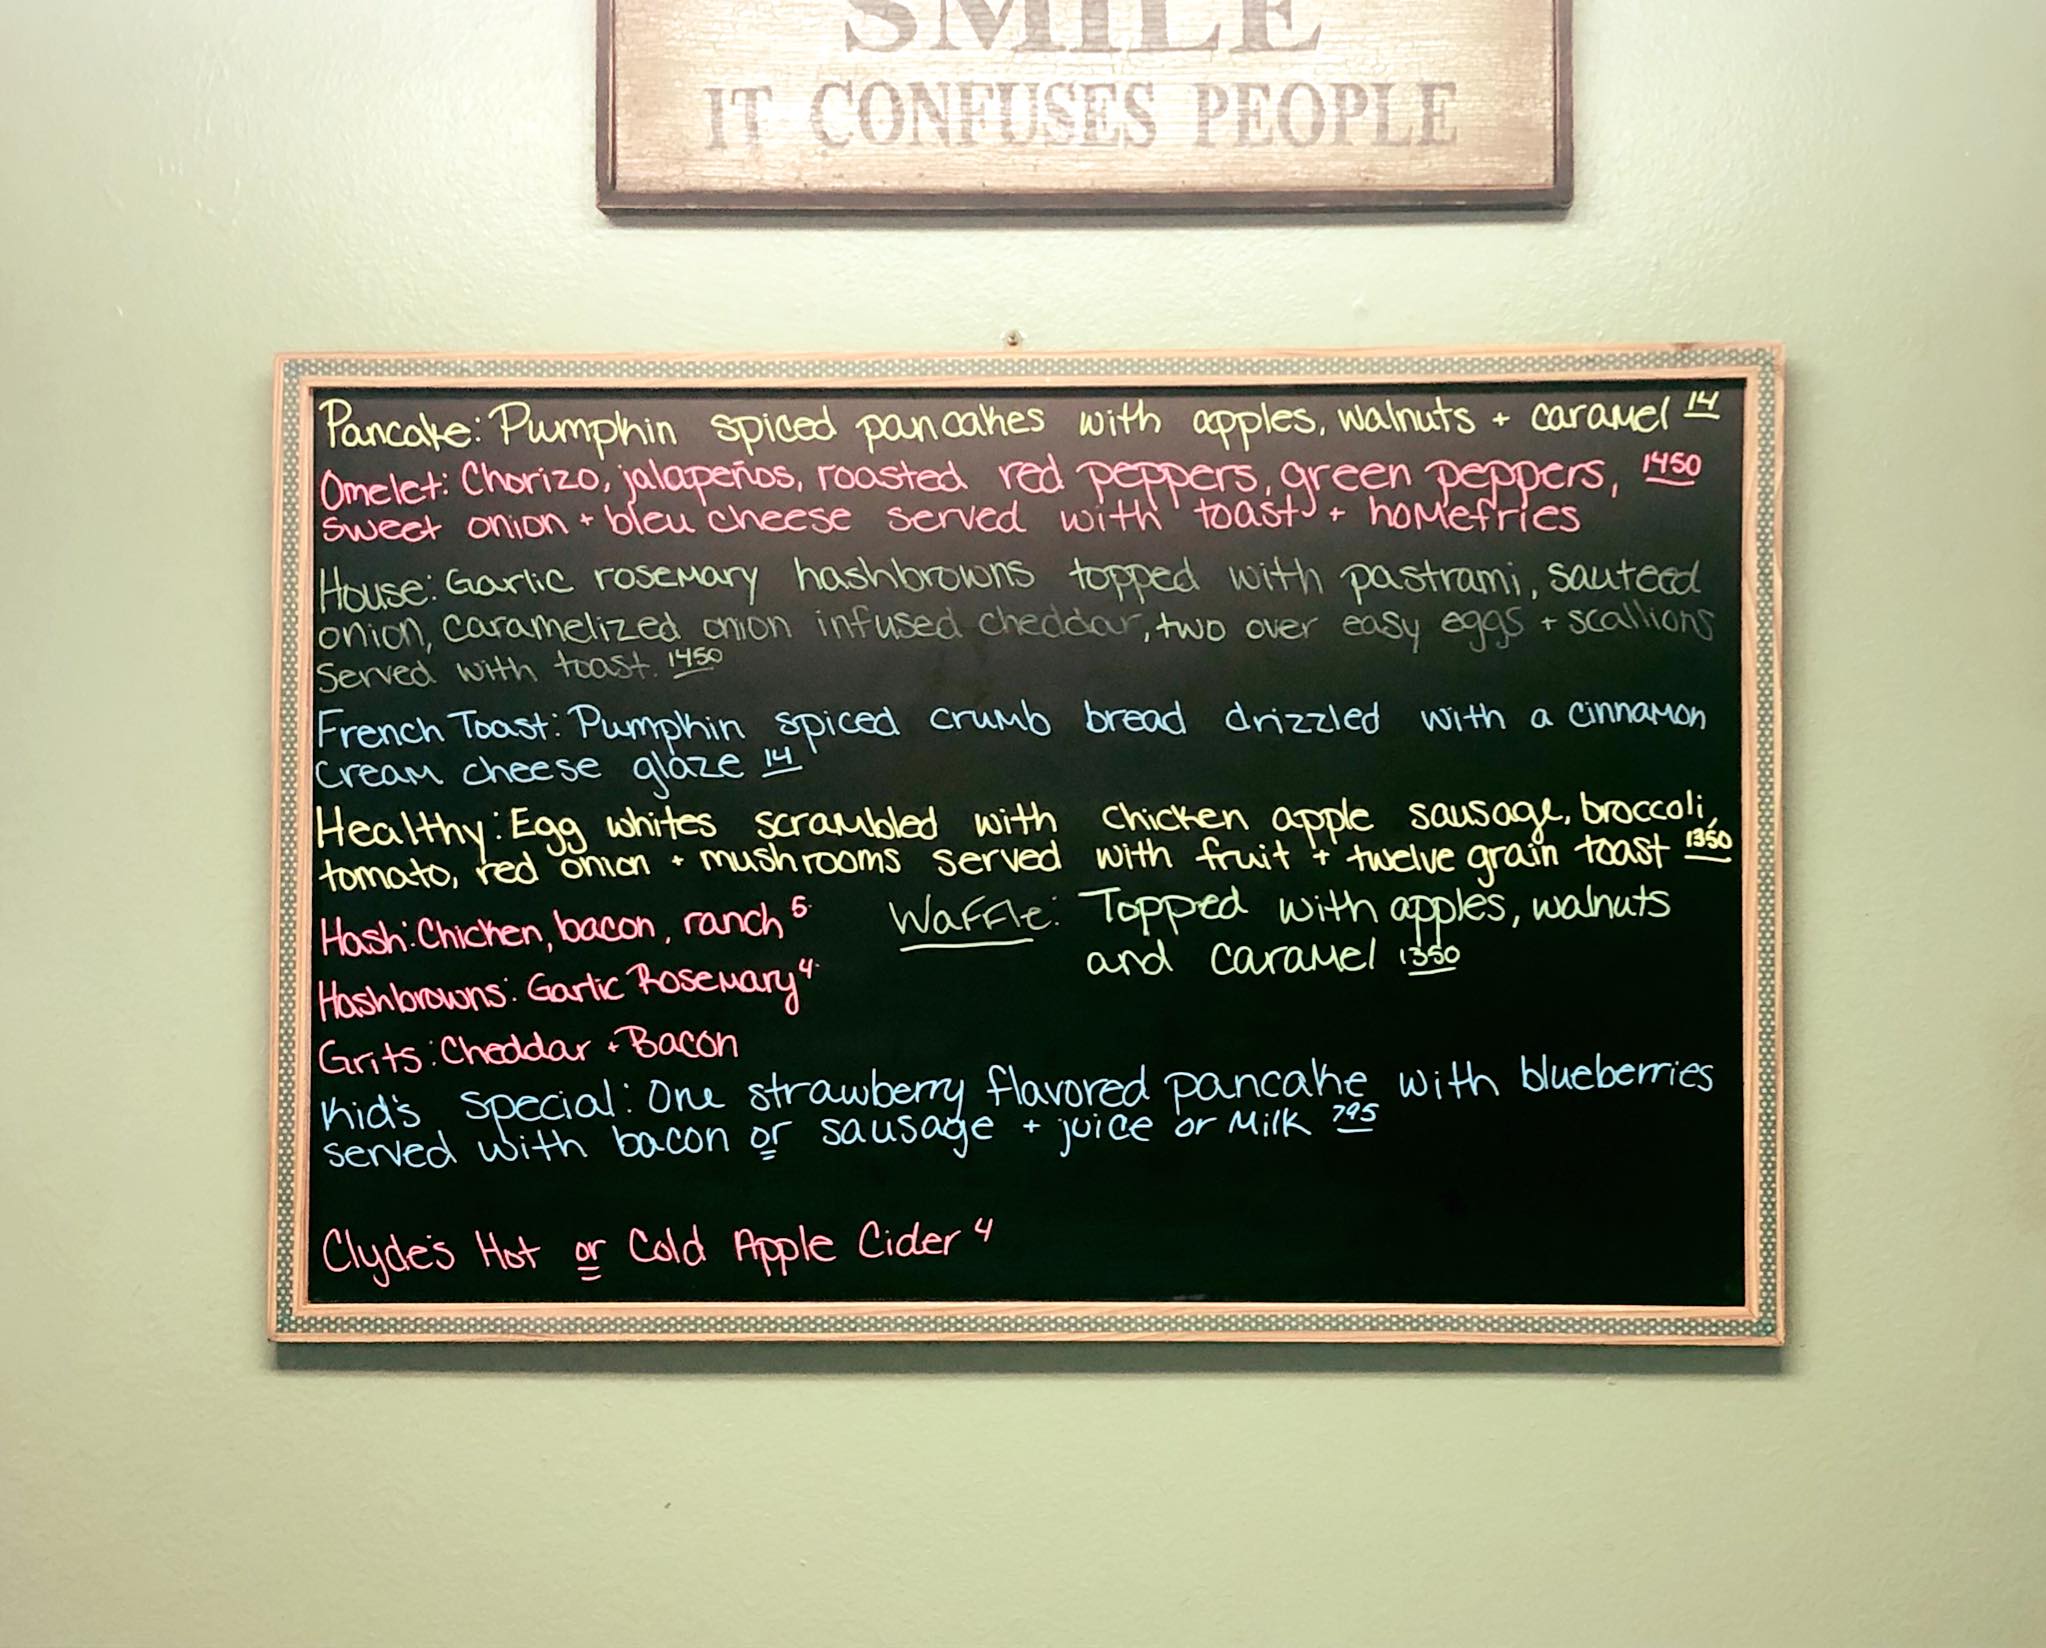 SMILE
IT CONFUSES PEOPLE
Pancake: Pumpkin spiced pancakes with apples, walnuts + caramel 14
Omelet: Chorizo, jalapeños, roasted red peppers, green peppers, 1450
sweet onion + bleu cheese served with toast + homefries
House: Garlic rosemary hashbrowns topped with pastrami, sauteed
onion, caramelized onion infused cheddar, two over easy eggs + scallions
Served with toast. 1450
French Toast: Pumpkin spiced crumb bread drizzled with a cinnamon
cream cheese glaze 14
Healthy: Egg whites scrambled with chicken apple sausage, broccoli,
tomato, red onion + mushrooms served with fruit + twelve grain toast 1350
Hash: Chicken, bacon, ranch 5
Waffle: Topped with apples, walnuts
and caramel 1350
Hashbrowns: Garlic Rosemary 4
Grits: Cheddar + Bacon
Kid's Special: One strawberry flavored pancake with blueberries
served with bacon or sausage + juice or Milk 795
Clyde's Hot or Cold Apple Cider 4